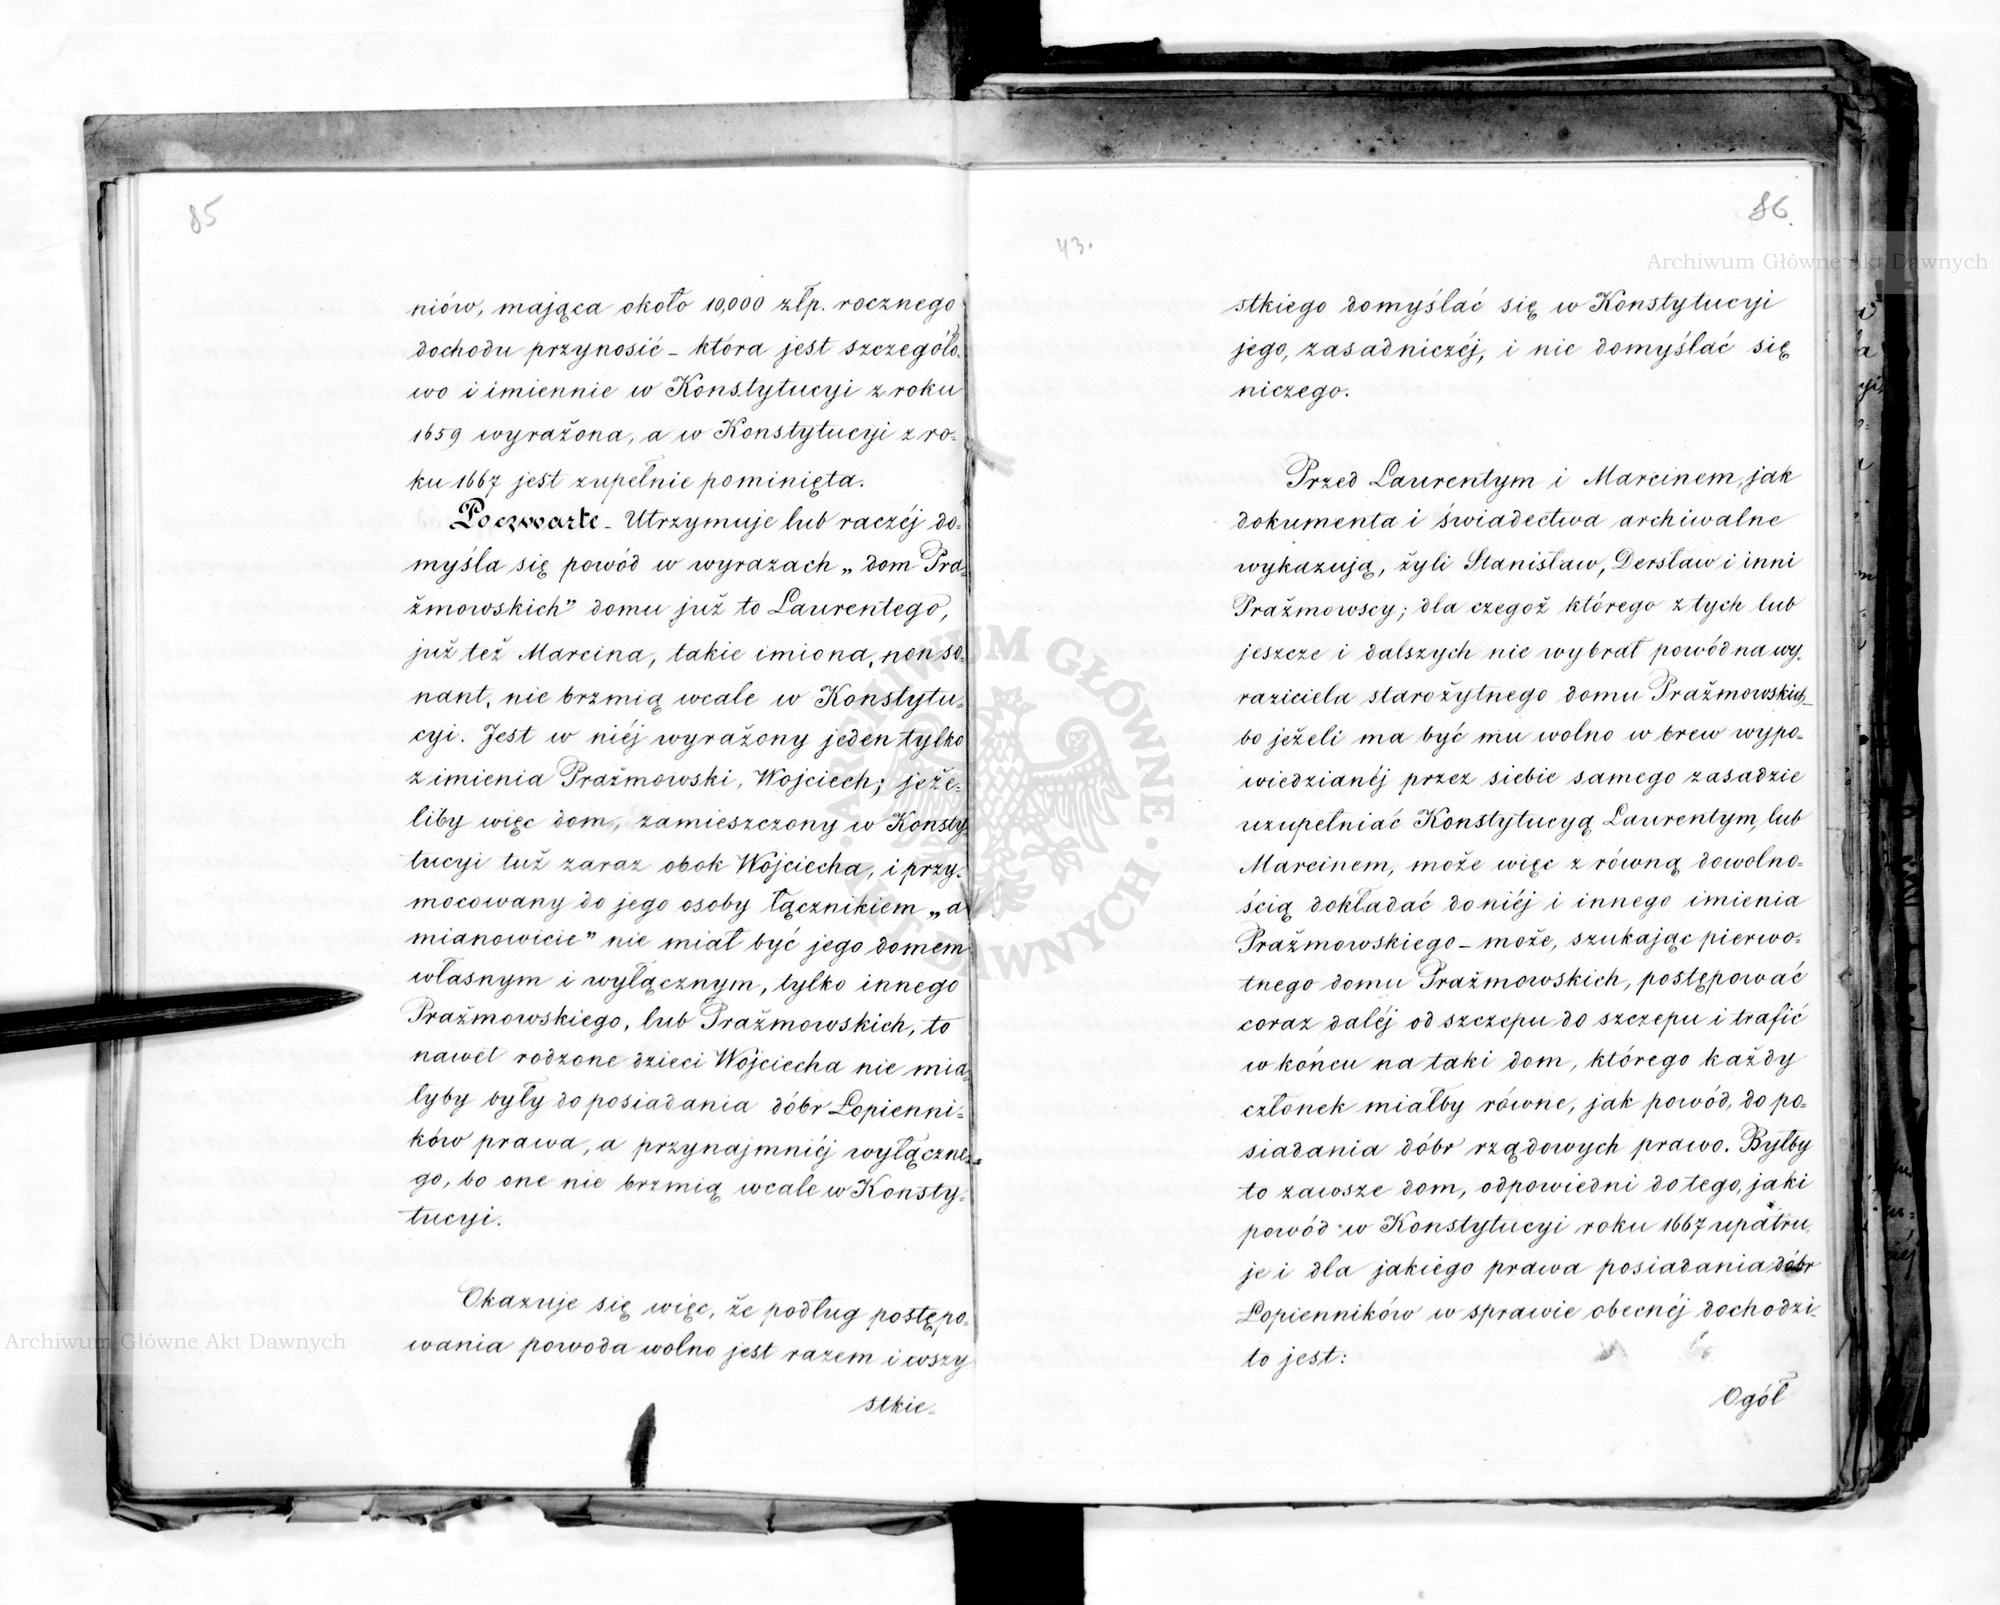 85
niów, mająca około 10,000 złp. rocznego
dochodu przynosić – która jest szczegóło-
wo i imiennie w Konstytucyi z roku
1659 wyrażona, a w Konstytucyi z ro-
ku 1667 jest zupełnie pominięta.
Poczwarte – Utrzymuje lub raczéj do-
myśla się powód w wyrazach „dom Pra-
żmowskich” domu już to Laurentego,
już też Marcina, takie imiona, non so-
nant, nie brzmią wcale w Konstytu-
cyi. Jest w niéj wyrażony jeden tylko
z imienia Prażmowski, Wojciech; jeże-
liby więc dom, zamieszczony w Konsty
tucyi tuż zaraz obok Wojciecha, i przy-
mocowany do jego osoby łącznikiem „a
mianowicie” nie miał być jego domem
własnym i wyłącznym, tylko innego
Prażmowskiego, lub Prażmowskich, to
nawet rodzone dzieci Wojciecha nie mia-
łyby były do posiadania dóbr Łopienni-
ków prawa, a przynajmniéj wyłączne-
go, bo one nie brzmią wcale w Konsty-
tucyi.
Okazuje się więc, że podług postępo-
wania powoda wolno jest razem i wszy
stkie-
86.
43.
stkiego domyślać się w Konstytucyi
jego, zasadniczéj, i nie domyślać się
niczego.
Przed Laurentym i Marcinem, jak
dokumenta i świadectwa archiwalne
wykazują, żyli Stanisław, Dersław i inni
Prażmowscy; dla czegoż którego z tych lub
jeszcze i dalszych nie wybrał powód na wy-
raziciela starożytnego domu Prażmowskich,–
bo jeżeli ma być mu wolno w brew wypo-
wiedzianéj przez siebie samego zasadzie
uzupełniać Konstytucyą Laurentym, lub
Marcinem, może więc z równą dowolno-
ścią dokładać do niéj i innego imienia
Prażmowskiego – może, szukając pierwo-
tnego domu Prażmowskich, postępować
coraz daléj od szczepu do szczepu i trafić
w końcu na taki dom, którego każdy
członek miałby równe, jak powód, do po-
siadania dóbr rządowych prawo. Byłby
to zawsze dom, odpowiedni do tego, jaki
powód w Konstytucyi roku 1667 upatru-
je i dla jakiego prawa posiadania dóbr
Łopienników w sprawie obecnéj dochodzi-
to jest:
Ogół
Archiwum Główne Akt Dawnych
Archiwum Główne Akt Dawnych
ARCHIWUM GŁÓWNE AKT DAWNYCH